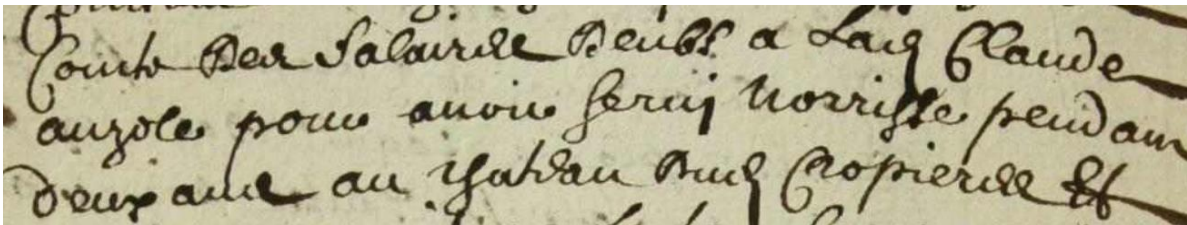 Comte des salaires deubs a Lad Claude
auzole pour avoir servi norrisse pendant
deux ans au chateau dud Cropieres Et